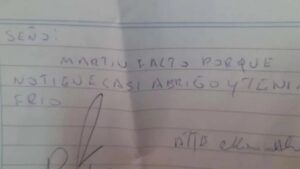 SEÑO:
MARTIN FALTO PORQUE
NO TIGUE CASI ABRIGO Y TENIA
FRIO
ATTO